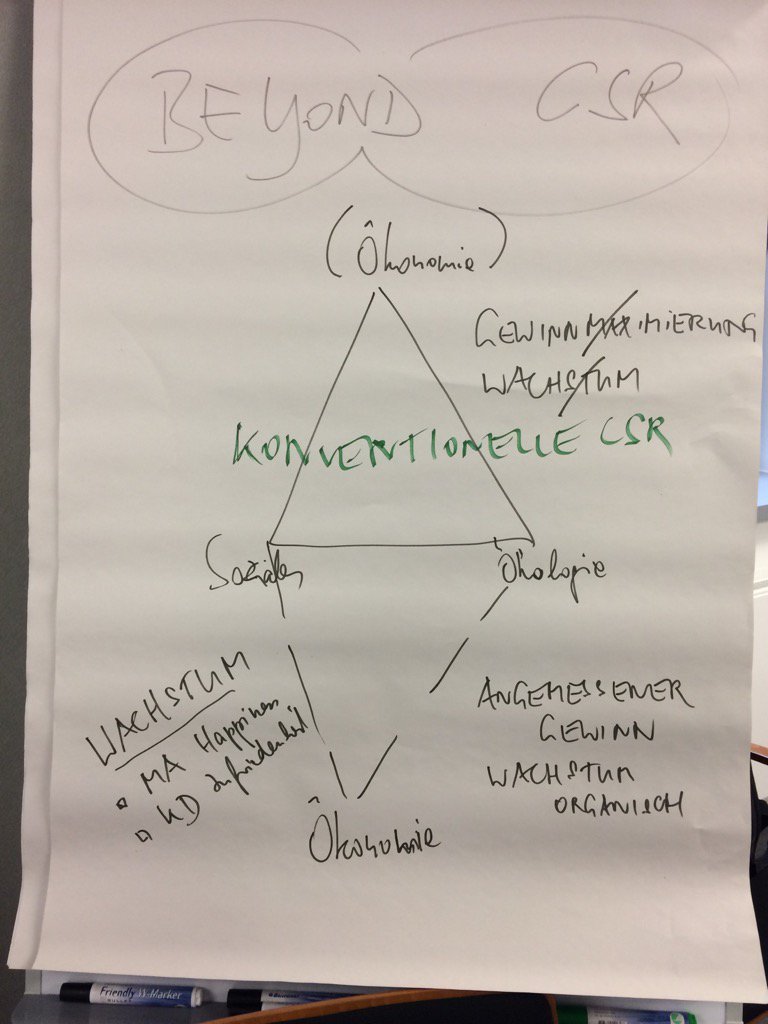 BEYOND CSR
(Ökonomie)
GEWINNMAXIMIERUNG
WACHSTUM
KONVENTIONELLE CSR
Soziales
Ökologie
WACHSTUM
MA Happiness
KD Zufriedenheit
ANGEMESSENER
GEWINN
WACHSTUM
ORGANISCH
Ökonomie
Friendly W-Marker